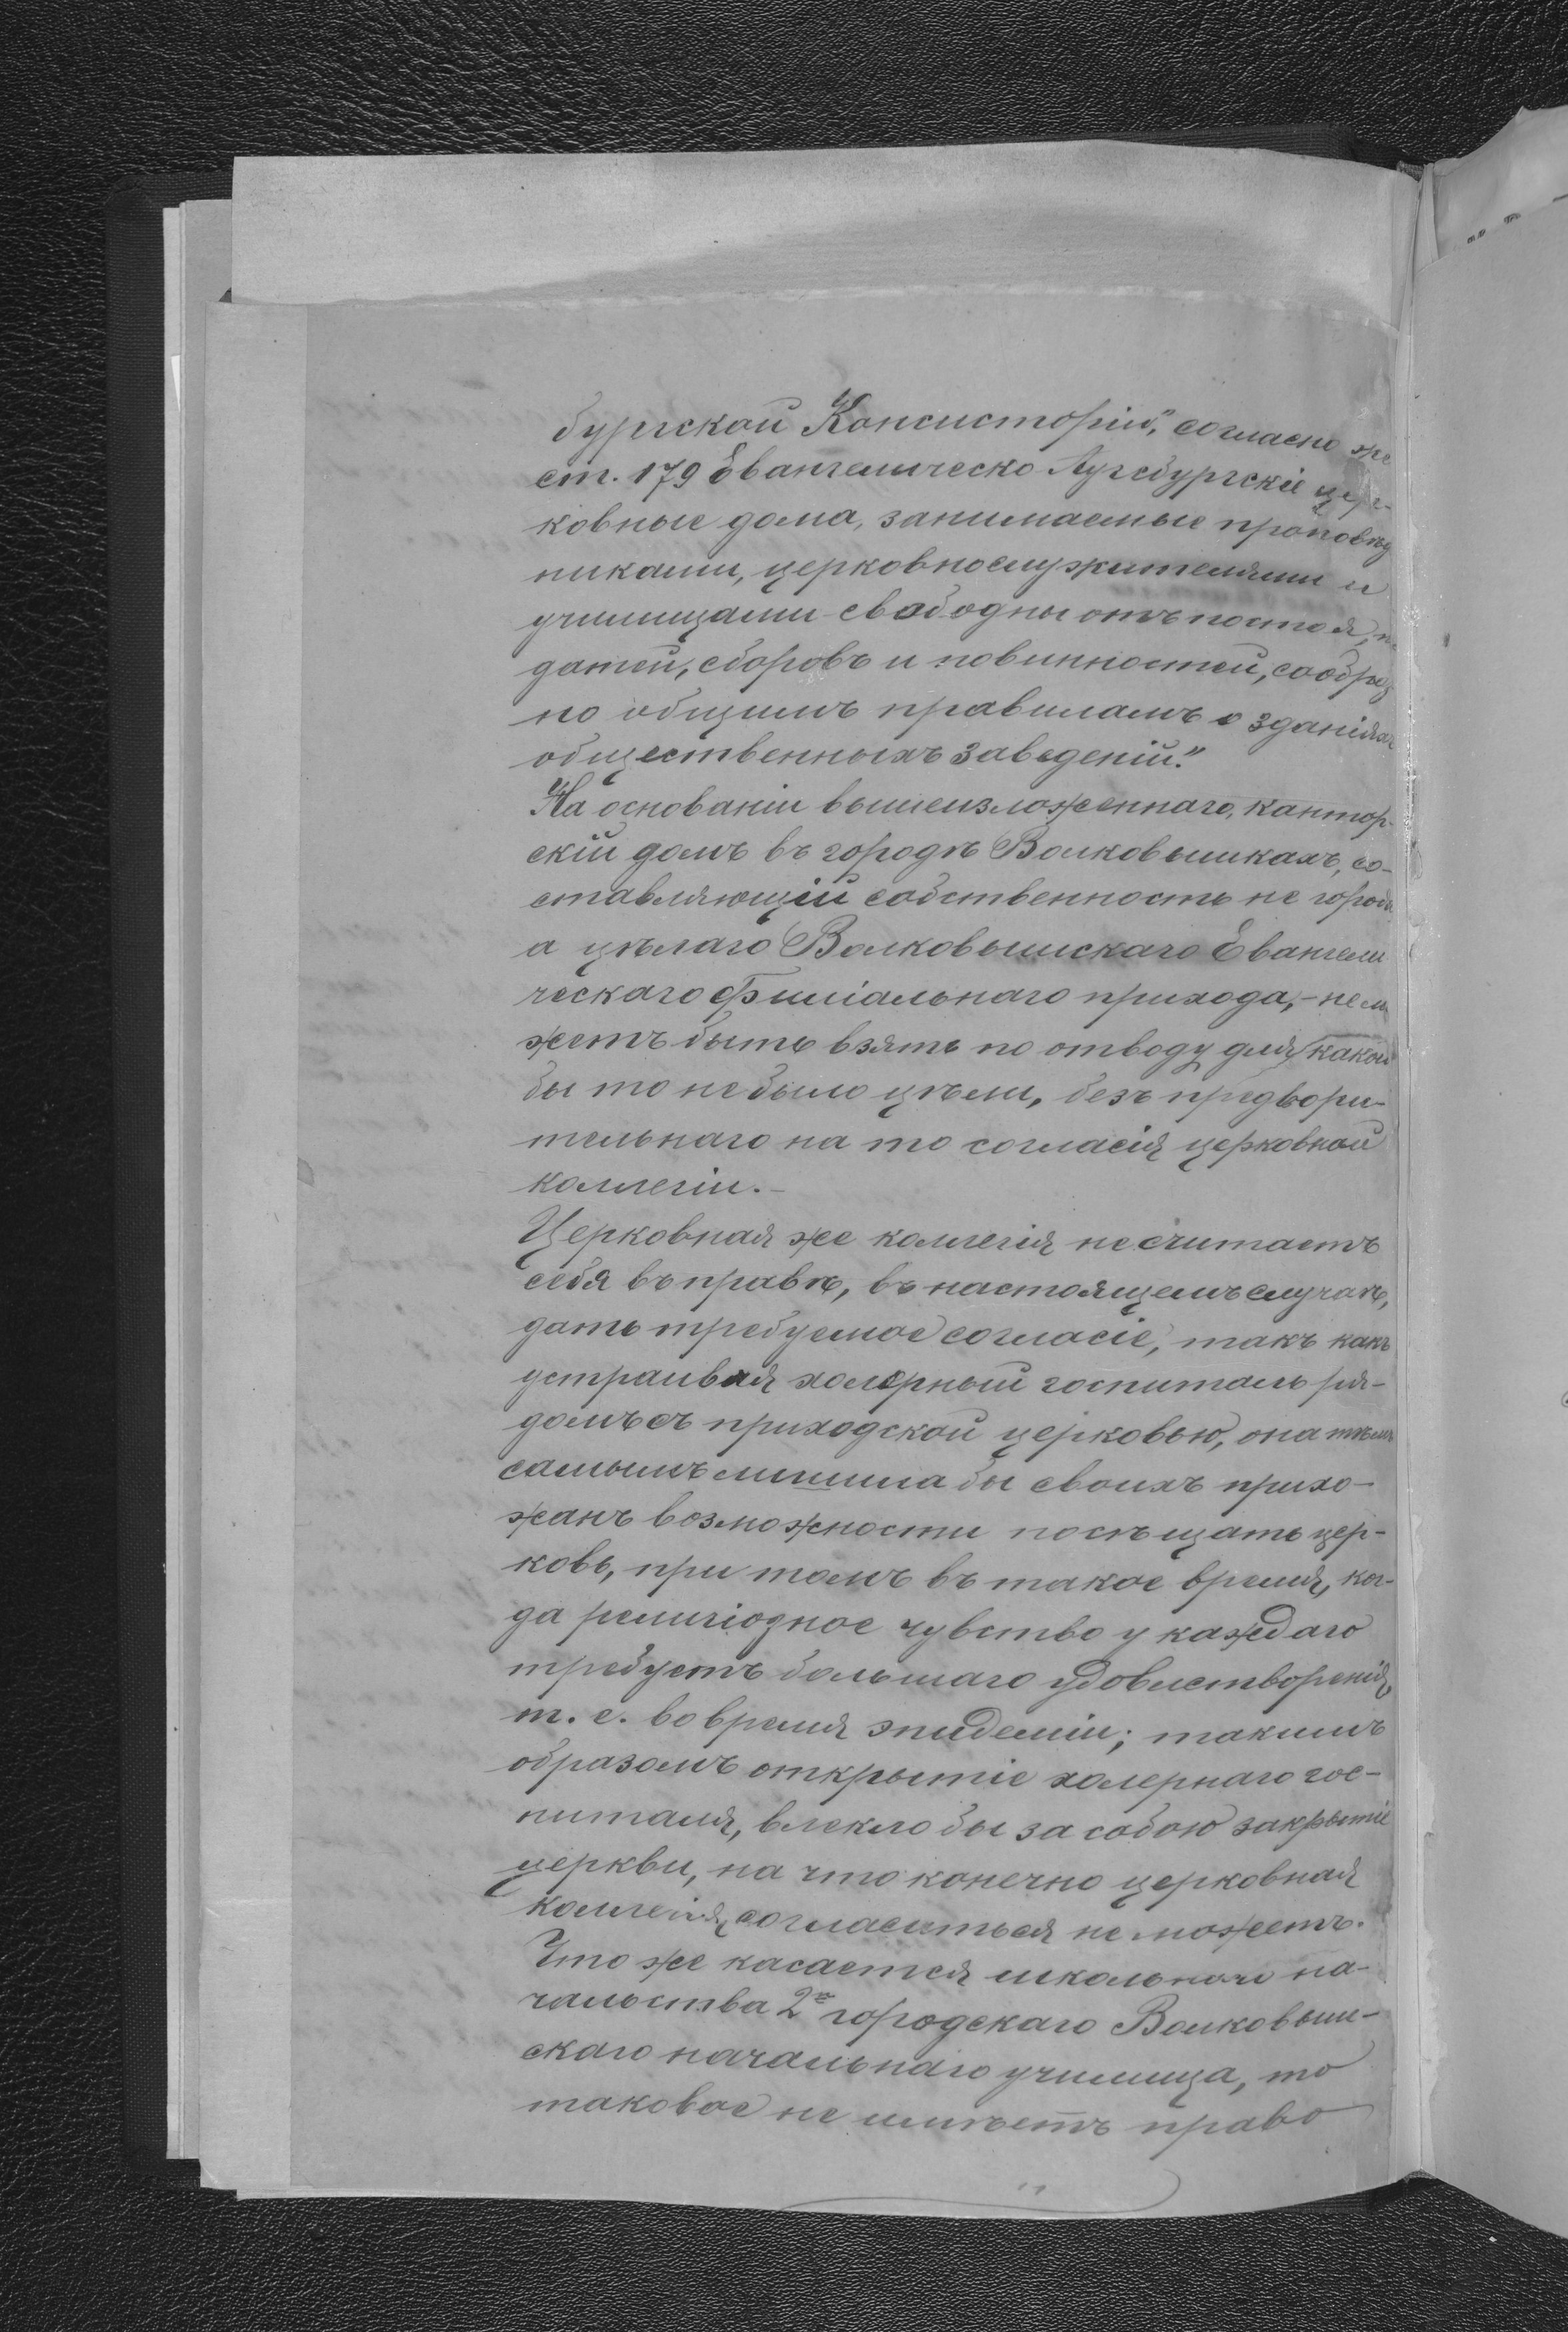 бургской Консисторіи", согласно же
ст. 179 Евангелическо-Аугсбургскіе цер-
ковные дома, занимаемые проповѣд
никами, церковнослужителями и
училищами свободны отъ постоя, по
датей, сборовъ и повинностей, сообраз
но общимъ правиламъ о зданіях
общественныхъ заведеній."
На основаніи вышеизложеннаго, кантор-
скій домъ въ городѣ Волковышкахъ, со-
ставляющій собственность не города
а цѣлаго Волковышскаго Евангели
ческаго Филіальнаго прихода, - не мо
жетъ быть взять по отводу для какой
бы то не было цѣли, безъ предвори-
тельнаго на то согласія церковной
коллегіи. -
Церковная же коллегія не считаетъ
себя въ правѣ, въ настоящемъ случаѣ,
дать требуемое согласіе, такъ какъ
устраивая холерный госпиталь ря-
домъ съ приходской церковью, она тѣмъ
самымъ лишила бы своихъ прихо-
жанъ возможности посѣщать цер-
ковь, при томъ въ такое время, ког-
да религіозное чувство у каждаго
требуетъ большаго удовлетворенія,
т. е. во время эпидеміи; такимъ
образомъ открытіе холернаго гос-
питаля, влекло бы за собою закрытіе
церкви, на что конечно церковная
коллегія, согласиться не можетъ.
Что же касается школьнаго на-
чальства 2го городскаго Волковыш-
скаго начальнаго училища, то
таковое не имѣетъ право